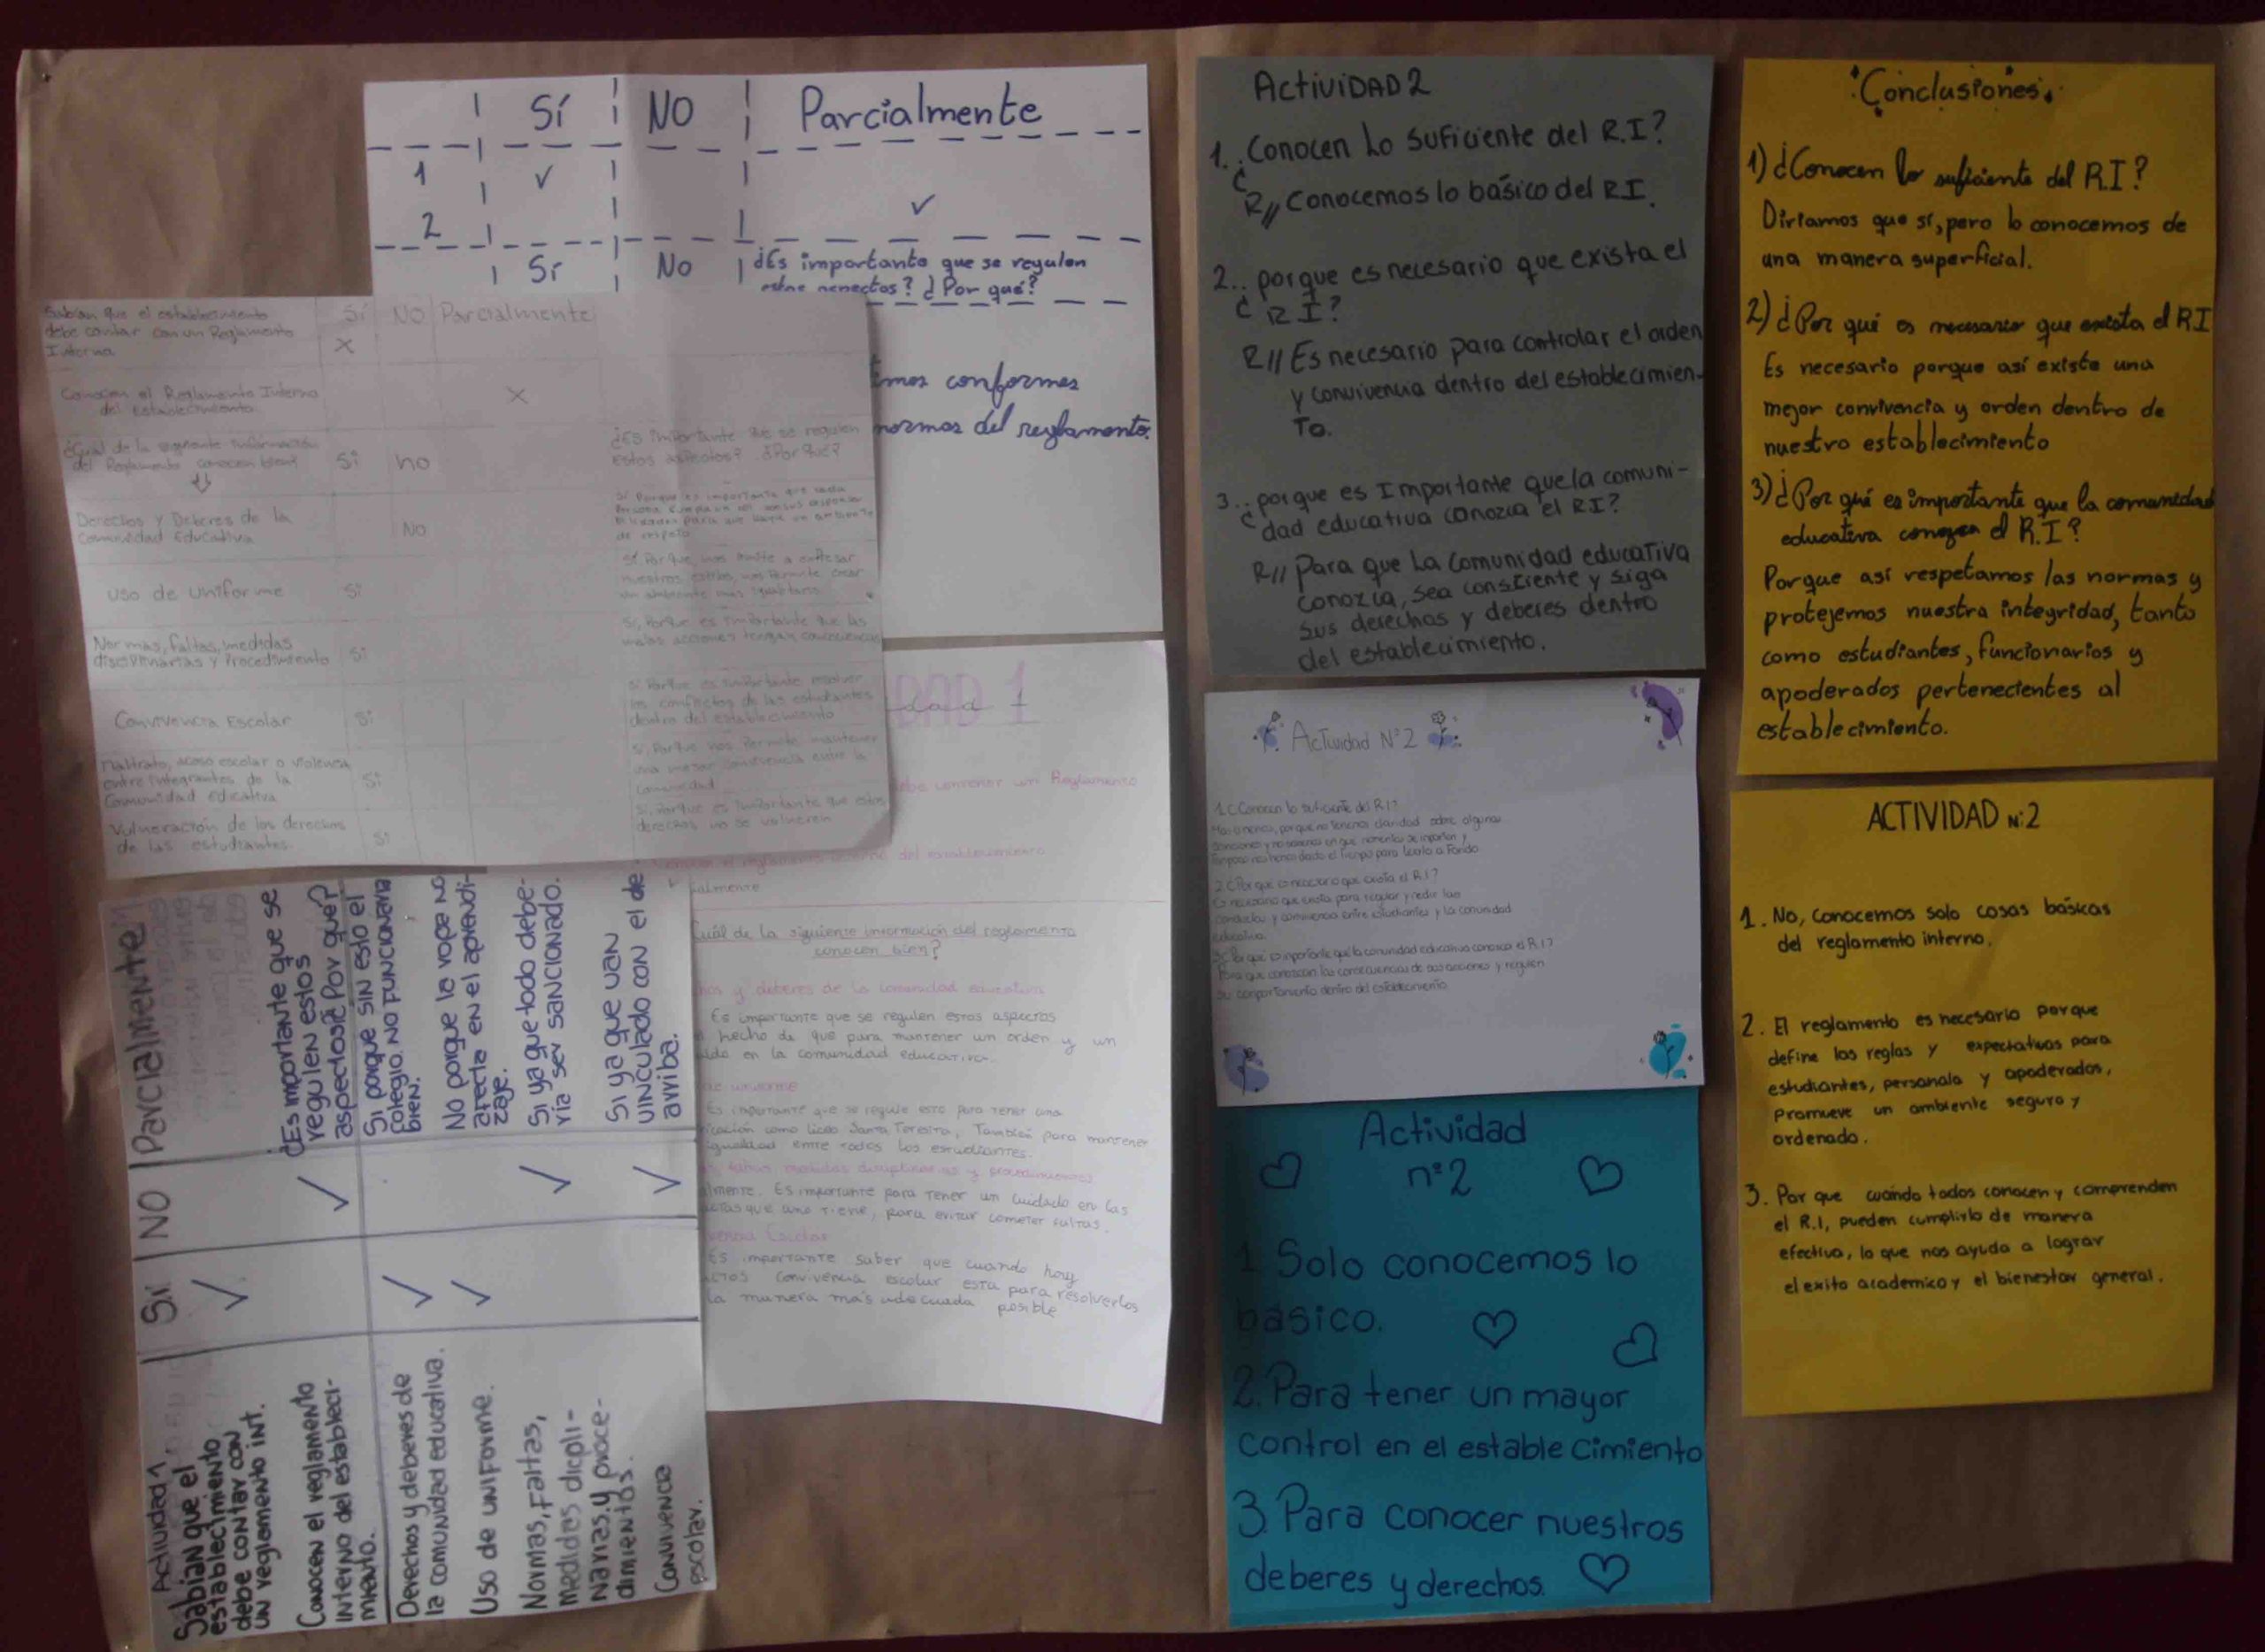 Sí NO Parcialmente
1 ✓
2 ✓
Sí No ¿Es importante que se regulen
¿Por qué?
conformes
normas del reglamento.
Sabian que el establecimiento
debe contar con un Reglamento
Interno
Sí NO Parcialmente
X
Conocen el Reglamento Interno
del Establecimiento
X
¿Cual de la siguiente información
del Reglamento conocen bien?
Sí no
¿Es importante que se regulen
estos aspectos? ¿Por qué?
Derechos y Deberes de la
Comunidad Educativa
No
Sí Porque es importante que cada
para que haya un ambiente
de respeto
Uso de Uniforme Sí
Normas, faltas, medidas
disciplinarias y Procedimiento Sí
Sí, Porque es importante que las
malas acciones tengan
Convivencia Escolar Sí
Sí Porque es importante resolver
los conflictos de las estudiantes
dentro del establecimiento
maltrato, acoso escolar o violencia
entre integrantes de la
Comunidad Educativa
Sí
Sí, Porque nos Permite mantener
una mejor convivencia entre la
comunidad
Vulneración de los derechos
de las estudiantes. Sí
Sí, Porque es importante que estos
derechos no se vulneren
DAD 1
un Reglamento
del establecimiento
ialmente
Cuál de la siguiente información del reglamento
conocen bien?
y deberes de la comunidad educativa
Es importante que se regulen estos aspectos
hecho de que para mantener un orden y un
en la comunidad educativa.
uniforme
Es importante que se regule esto para tener una
como Liceo Santa Teresita, También para mantener
igualdad entre todos los estudiantes.
medidas disciplinarias y procedimientos
lmente. Es importante para tener un cuidado en las
que uno tiene, para evitar cometer faltas.
Es importante saber que cuando hay
convivencia escolar esta para resolverlos
la manera más adecuada posible
Actividad 1.
Sí NO Parcialmente
Sabian que el
establecimiento
debe contar con
un reglamento int.
✓
Conocen el reglamento
interno del estableci-
miento.
✓
¿Es importante que se
regulen estos
aspectos? Por que?
Derechos y deberes de
la comunidad educativa.
✓
Si porque sin esto el
colegio no funcionaria
bien.
Uso de uniforme.
✓
No porque la ropa no
afecta en el aprendi-
zaje.
Normas, faltas,
medidas dicipli-
narias. y proce-
dimientos.
✓
Si ya que todo debe-
ria ser sancionado.
Convivencia
escolar.
✓
Si ya que van
vinculado con el de
arriba.
ActiviDAD 2
1. ¿Conocen Lo suficiente del R.I?
R// Conocemos lo básico del R.I.
2.. ¿porque es necesario que exista el
R I?
R// Es necesario para controlar el orden
y convivencia dentro del establecimien-
To.
3.. ¿porque es Importante que la comuni-
dad educativa conozca el R.I?
R// Para que La comunidad educativa
conozca, sea consciente y siga
sus derechos y deberes dentro
del establecimiento.
Actividad N°2
1. ¿Conocen lo suficiente del R.I?
Mas o menos, porque no tenemos claridad sobre algunas
sanciones y no sabemos en que momentos se imparten y
tampoco nos hemos dado el tiempo para leerlo a Fondo
2. ¿Por qué es necesario que exista el R.I?
Es necesario que exista para regular y medir las
conductas y convivencia entre estudiantes y la comunidad
educativa.
3. ¿Por qué es importante que la comunidad educativa conozca el R.I?
Para que conozcan las consecuencias de sus acciones y regulen
su comportamiento dentro del establecimiento
Actividad
n°2
1. Solo conocemos lo
básico.
2. Para tener un mayor
control en el establecimiento
3. Para conocer nuestros
deberes y derechos.
Conclusiones.
1) ¿Conocen lo suficiente del R.I?
Diríamos que sí, pero lo conocemos de
una manera superficial.
2) ¿Por qué es necesario que exista el RI
Es necesario porque así existe una
mejor convivencia y orden dentro de
nuestro establecimiento
3) ¿Por qué es importante que la comunidad
educativa conozca el R.I?
Porque así respetamos las normas y
protejemos nuestra integridad, tanto
como estudiantes, funcionarios y
apoderados pertenecientes al
establecimiento.
ACTIVIDAD N°2
1. No, conocemos solo cosas basicas
del reglamento interno.
2. El reglamento es necesario porque
define las reglas y expectativas para
estudiantes, personals y apoderados,
promueve un ambiente seguro y
ordenado.
3. Por que cuando todos conocen y comprenden
el R.I, pueden cumplirlo de manera
efectiva, lo que nos ayuda a lograr
el exito academico y el bienestar general.